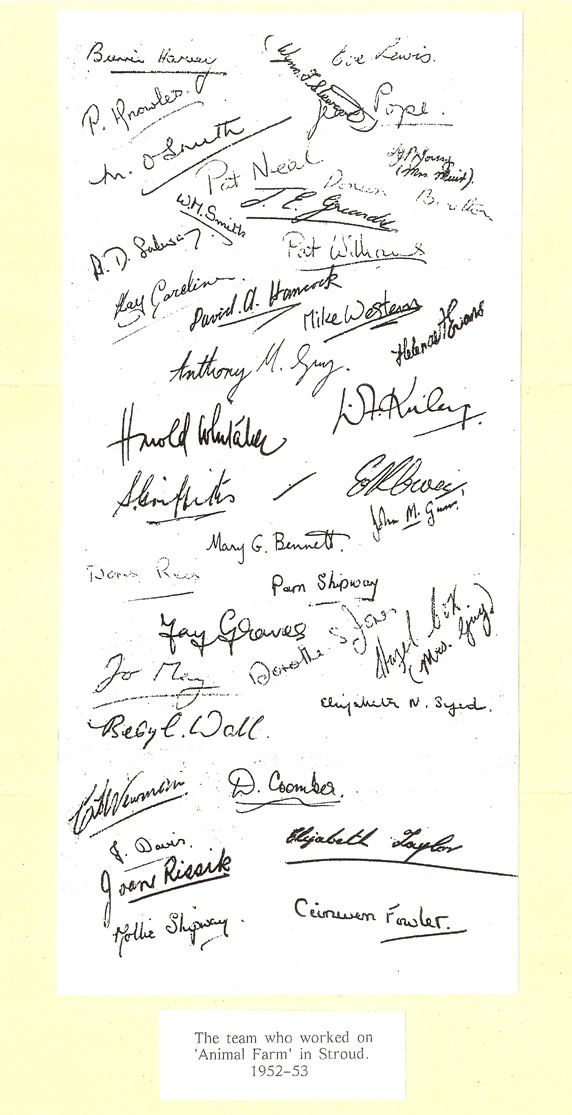 Harvey
Eve Lewis.
P. Knowles.
Pope.
M. O Smith
Pat Neal
(Mrs. Muist).
Doreen
W.M. Smith
A. D.
Pat Williams
Kay
David. A. Hancock
Mike
Helena
Anthony M. Guy.
Harold Whitaker
S. Griffiths
John M. Gunn
Mary G. Bennett.
Doris Rees
Pam Shipway
Fay Graves
Dorothe S Jones
Hazel Cox
(Mrs. Guy)
Jo May
Elizabeth N. Syed.
Beryl. Wall.
Newman
D. Coomber.
J. Davis.
Elizabeth Taylor
Joane Rissik
Mollie Shipway.
Ceinwen Fowler.
The team who worked on
'Animal Farm' in Stroud.
1952-53